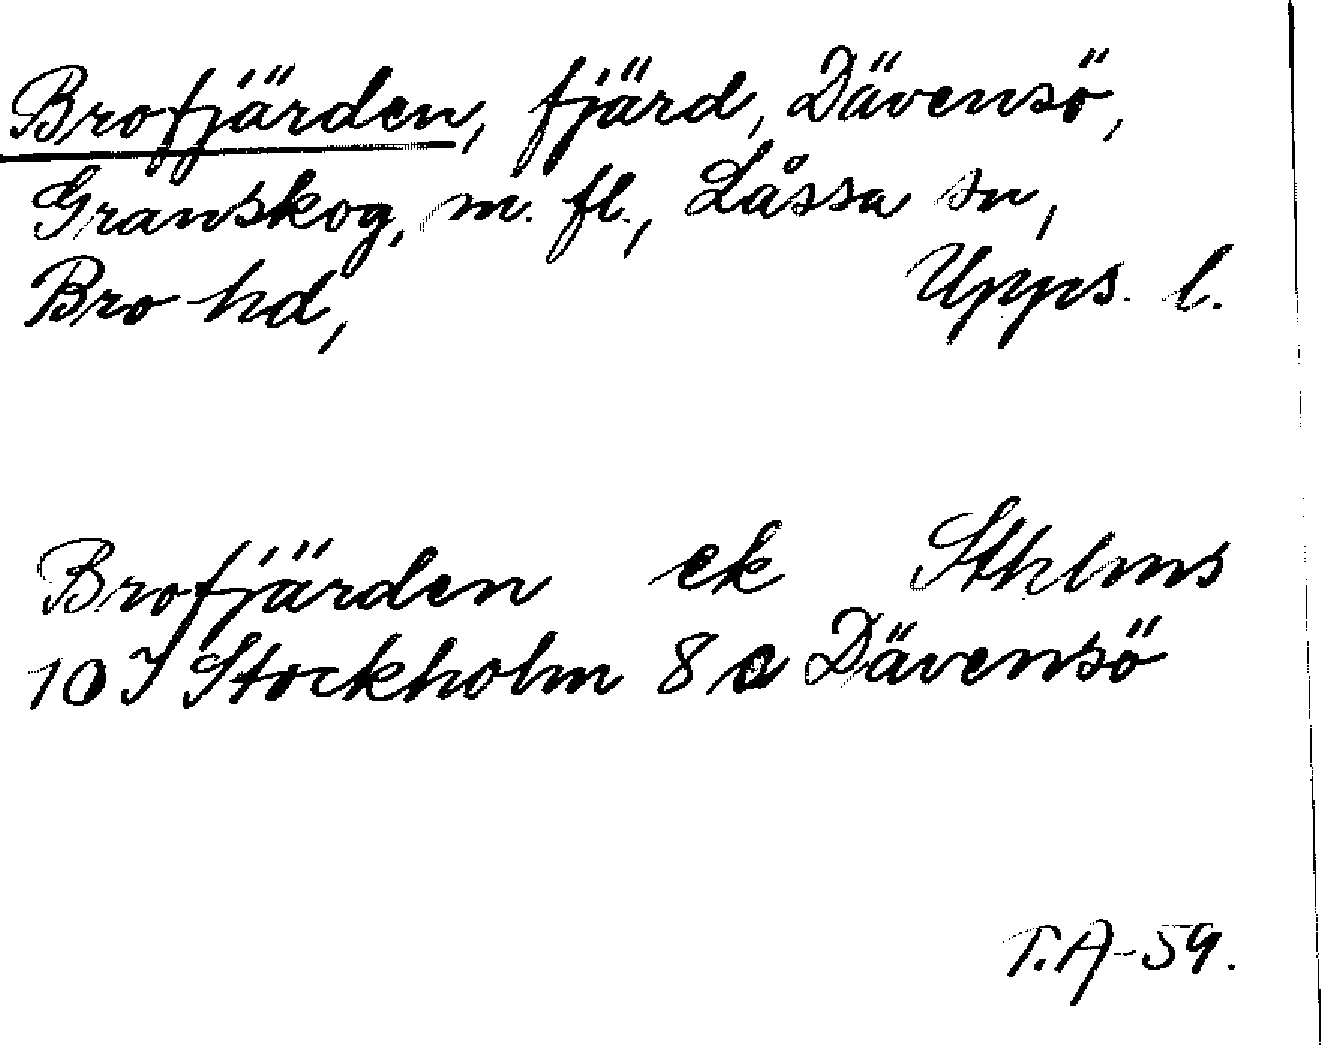 Brofjärden, fjärd, Dävensö,
Granskog, m. fl., Låssa sn,
Bro hd, Upps. l.
Brofjärden ek Sthlms
10 I Stockholm 8 a Dävensö
T.A-59.